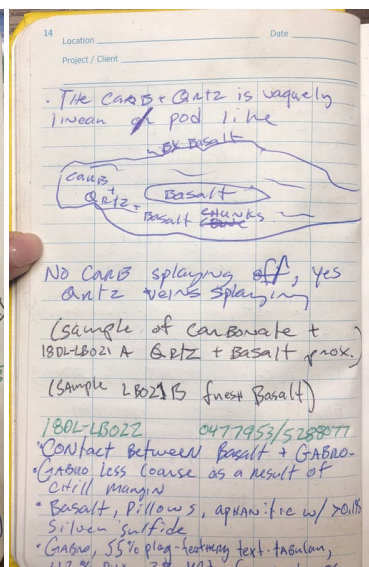 14
Location
Date
Project / Client
· The carb + Qrtz is vaguely
linear or pod like
Bk Basalt
carb
+
Qrtz
Basalt
Basalt chunks
No carb splaying off, yes
Qrtz veins splaying
(sample of carbonate +
18DL-LB021 A Qrtz + Basalt prox.)
(Sample LB021B fresh Basalt)
18DL-LB022 0477953/5288077
· Contact between Basalt + Gabro-
· Gabro less coarse as a result of
chill margin
· Basalt, Pillows, aphanitic w/ >0.1%
silver sulfide
· Gabro, 55% plag-feathery text. tabular,